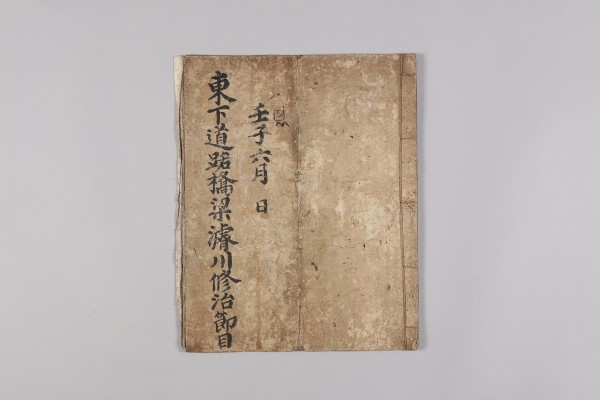 壬子六月 日
東下道路橋梁濬川修治節目